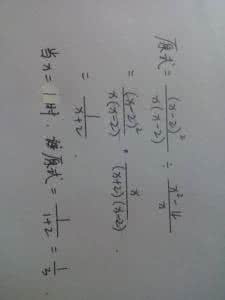 原式 = (x-2)²/x(x-2) ÷ x²-4/x
= (x-2)²/x(x-2) · x/(x+2)(x-2)
= 1/x+2
当x=1时. 原式 = 1/1+2 = 1/3